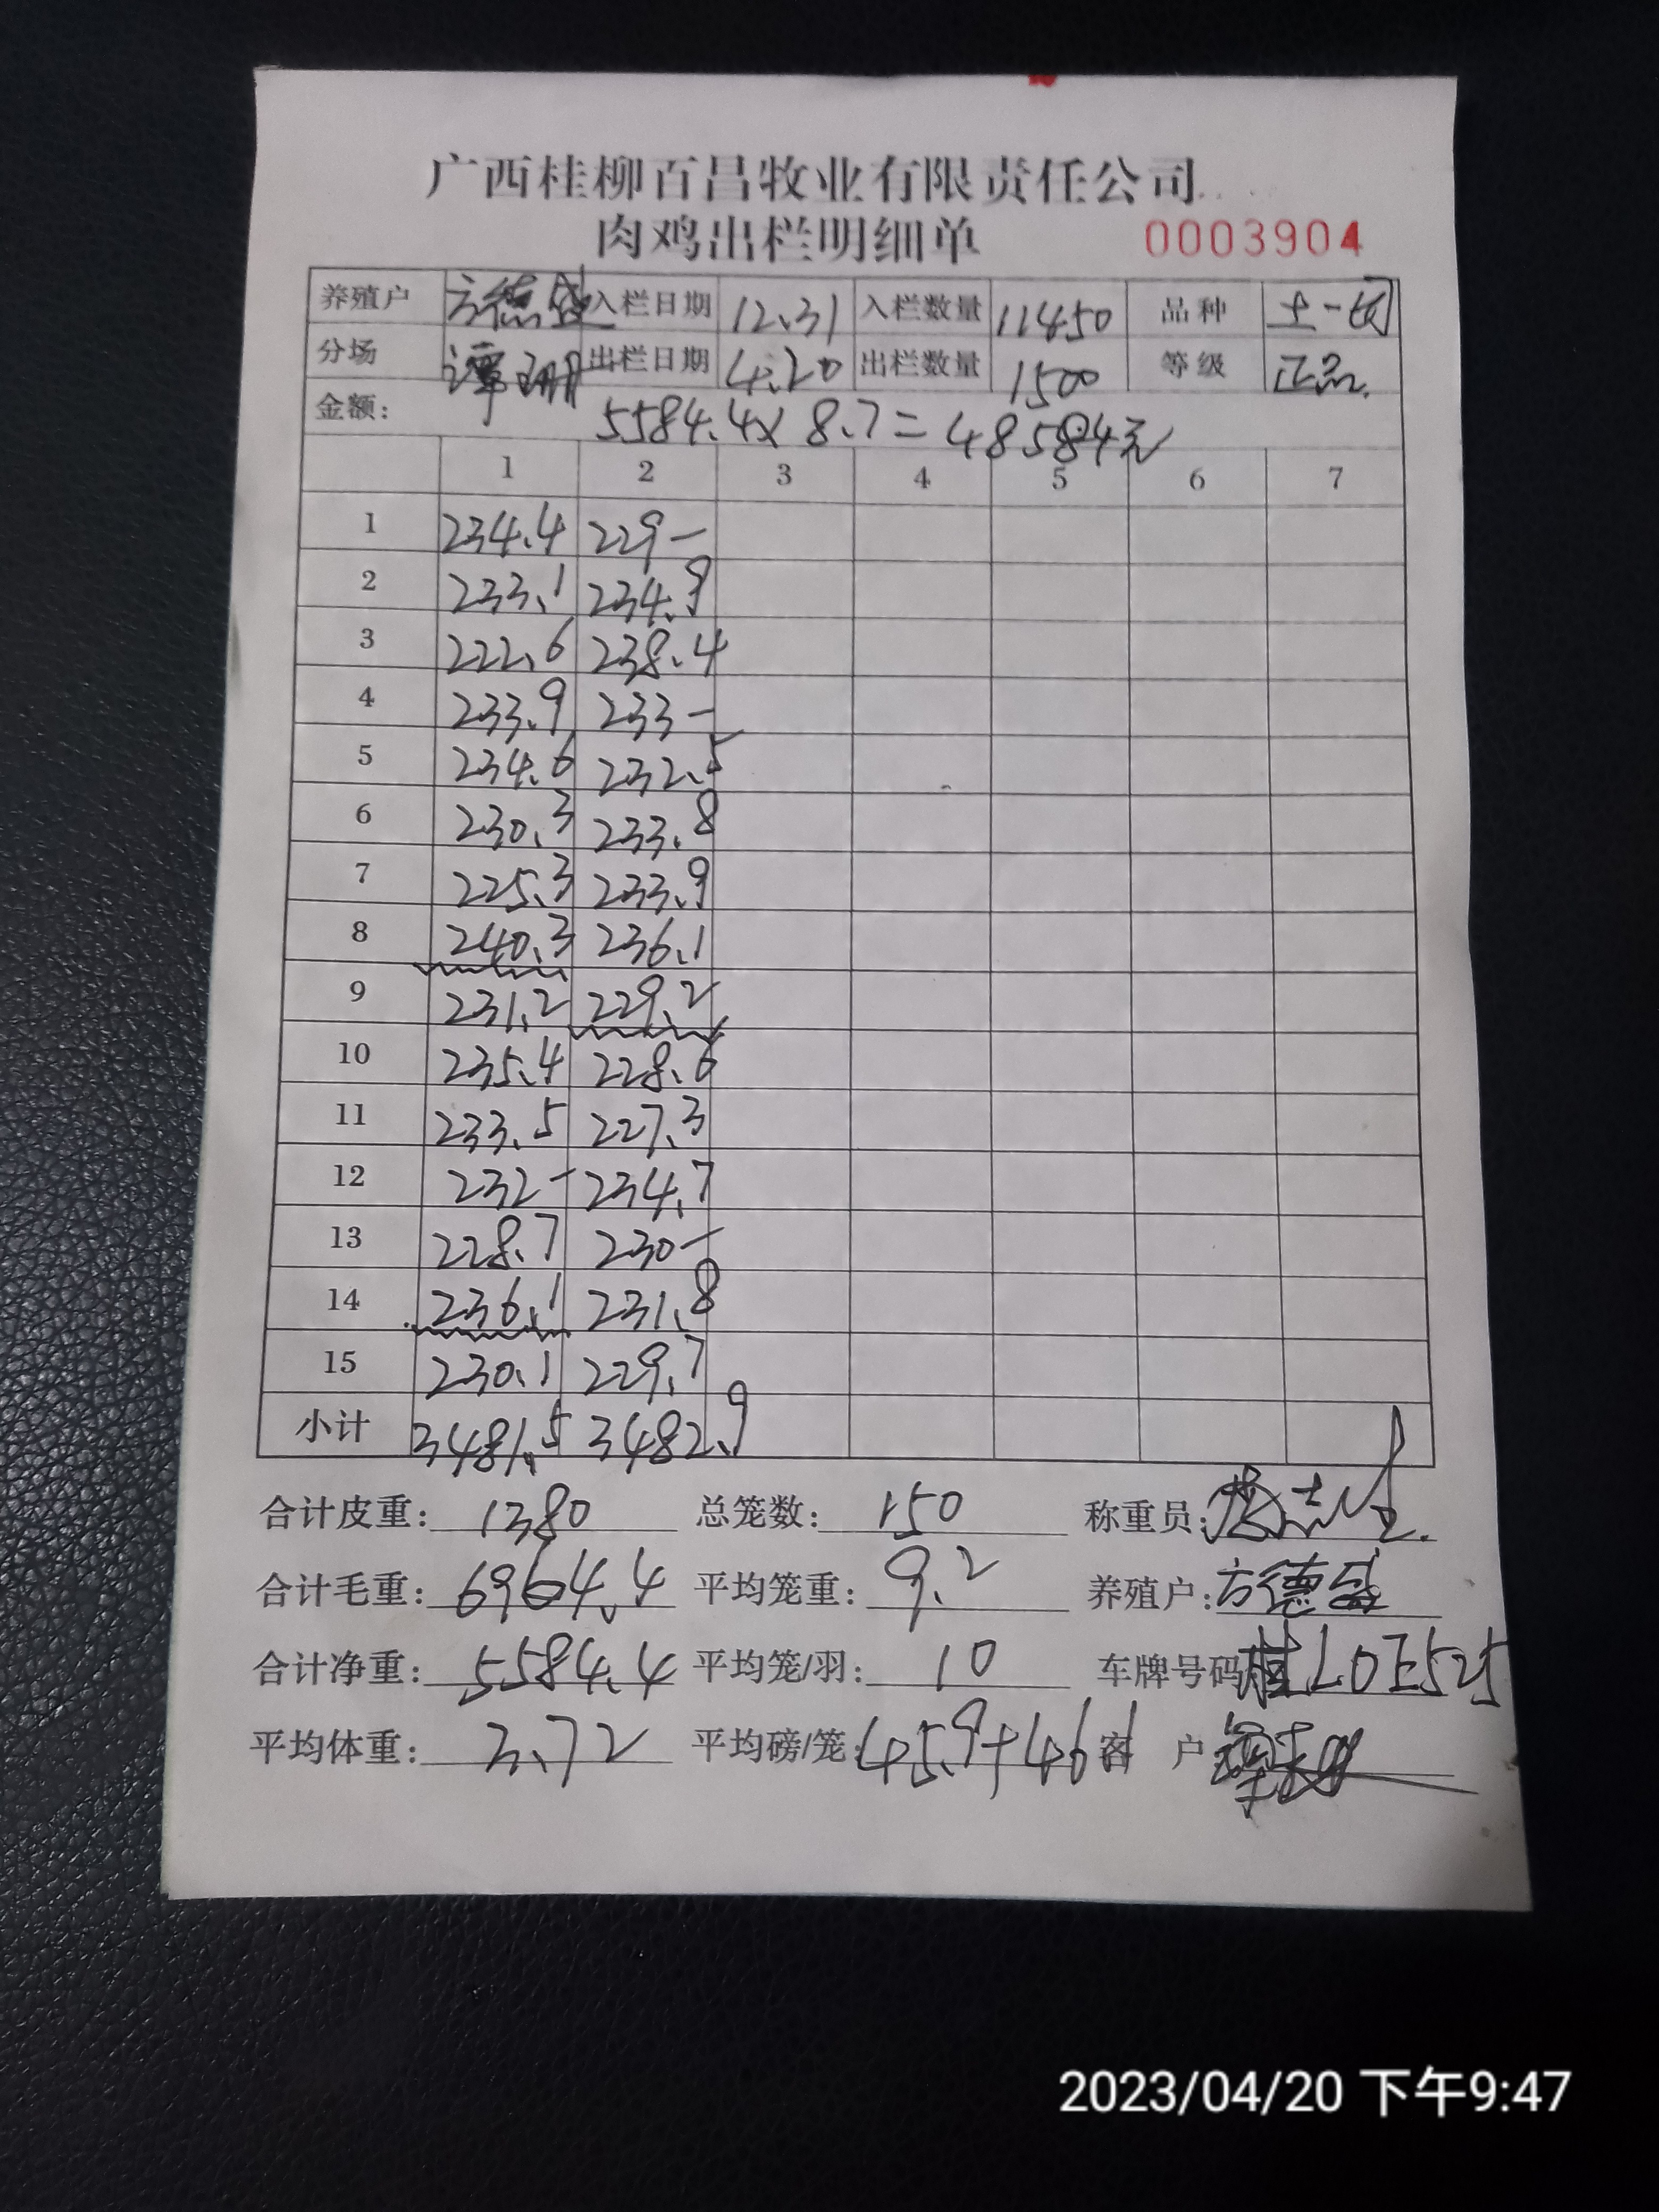 广西桂柳百昌牧业有限责任公司
肉鸡出栏明细单 0003904
养殖户 方德盛 入栏日期 12.31 入栏数量 11450 品种 土一
分场 谭珊 出栏日期 4.20 出栏数量 1500 等级 正品.
金额: 5584.4x 8.7=48584元
1 2 3 4 5 6 7
1 234.4 229-
2 233.1 234.9
3 222.6 238.4
4 233.9 233-
5 234.6 232.5
6 230.3 233.8
7 225.3 233.9
8 240.3 236.1
9 231.2 229.2
10 235.4 228.6
11 233.5 227.3
12 232- 234.7
13 228.7 230-
14 236.1 231.8
15 230.1 229.7
小计 3481.5 3482.9
合计皮重: 1380 总笼数: 150 称重员:
合计毛重: 6964.4 平均笼重: 9.2 养殖户: 方德盛
合计净重: 5584.4 平均笼/羽: 10 车牌号码 桂L0E525
平均体重: 3.72 平均磅/笼: 45.9+46 客 户
2023/04/20 下午9:47